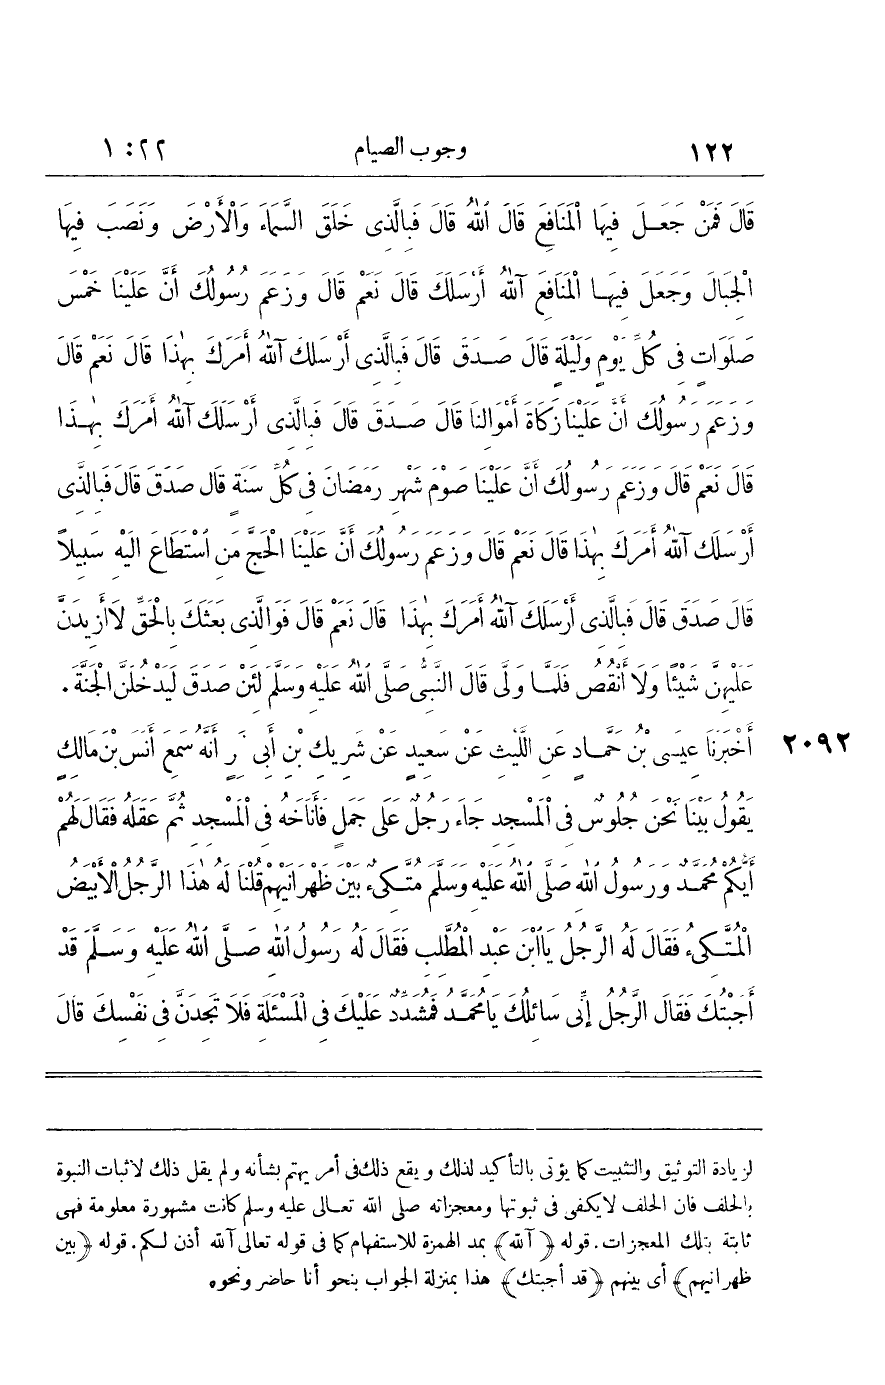 ١٢٢ وجوب الصيام ٢٢: ١
قَالَ فَمَنْ جَعَلَ فِيهَا الْمَنَافِعَ قَالَ اللهُ قَالَ فَبِالَّذِى خَلَقَ السَّمَاءَ وَالْأَرْضَ وَنَصَبَ فِيهَا
الْجِبَالَ وَجَعَلَ فِيهَا الْمَنَافِعَ آللهُ أَرْسَلَكَ قَالَ نَعَمْ قَالَ وَزَعَمَ رَسُولُكَ أَنَّ عَلَيْنَا خَمْسَ
صَلَوَاتٍ فِى كُلِّ يَوْمٍ وَلَيْلَةٍ قَالَ صَدَقَ قَالَ فَبِالَّذِى أَرْسَلَكَ آللهُ أَمَرَكَ بِهٰذَا قَالَ نَعَمْ قَالَ
وَزَعَمَ رَسُولُكَ أَنَّ عَلَيْنَا زَكَاةَ أَمْوَالِنَا قَالَ صَدَقَ قَالَ فَبِالَّذِى أَرْسَلَكَ آللهُ أَمَرَكَ بِهٰذَا
قَالَ نَعَمْ قَالَ وَزَعَمَ رَسُولُكَ أَنَّ عَلَيْنَا صَوْمَ شَهْرِ رَمَضَانَ فِى كُلِّ سَنَةٍ قَالَ صَدَقَ قَالَ فَبِالَّذِى
أَرْسَلَكَ آللهُ أَمَرَكَ بِهٰذَا قَالَ نَعَمْ قَالَ وَزَعَمَ رَسُولُكَ أَنَّ عَلَيْنَا الْحَجَّ مَنِ اسْتَطَاعَ الَيْهِ سَبِيلاً
قَالَ صَدَقَ قَالَ فَبِالَّذِى أَرْسَلَكَ آللهُ أَمَرَكَ بِهٰذَا قَالَ نَعَمْ قَالَ فَوَالَّذِى بَعَثَكَ بِالْحَقِّ لَاأَزِيدَنَّ
عَلَيْهِنَّ شَيْئًا وَلَا أَنْقُصُ فَلَمَّا وَلَّى قَالَ النَّبِىُّ صَلَّى اللهُ عَلَيْهِ وَسَلَّمَ لَئِنْ صَدَقَ لَيَدْخُلَنَّ الْجَنَّةَ .
٢٠٩٢ أَخْبَرَنَا عِيسَى بْنُ حَمَّادٍ عَنِ اللَّيْثِ عَنْ سَعِيدٍ عَنْ شَرِيكِ بْنِ أَبِى أَنَّهُ سَمِعَ أَنَسَ بْنَ مَالِكٍ
يَقُولُ بَيْنَا نَحْنُ جُلُوسٌ فِى الْمَسْجِدِ جَاءَ رَجُلٌ عَلَى جَمَلٍ فَأَنَاخَهُ فِى الْمَسْجِدِ ثُمَّ عَقَلَهُ فَقَالَ لَهُمْ
أَيُّكُمْ مُحَمَّدٌ وَرَسُولُ اللهِ صَلَّى اللهُ عَلَيْهِ وَسَلَّمَ مُتَّكِىءٌ بَيْنَ ظَهْرَانَيْهِمْ قُلْنَا لَهُ هٰذَا الرَّجُلُ الْأَبْيَضُ
الْمُتَّكِىءُ فَقَالَ لَهُ الرَّجُلُ يَاابْنَ عَبْدِ الْمُطَّلِبِ فَقَالَ لَهُ رَسُولُ اللهِ صَلَّى اللهُ عَلَيْهِ وَسَلَّمَ قَدْ
أَجَبْتُكَ فَقَالَ الرَّجُلُ إِنِّى سَائِلُكَ يَامُحَمَّدُ فَمُشَدِّدٌ عَلَيْكَ فِى الْمَسْئَلَةِ فَلَا تَجِدَنَّ فِى نَفْسِكَ قَالَ
لزيادة التوثيق والتثبيت كما يؤتى بالتأكيد لذلك و يقع ذلك فى أمر يهتم بشأنه ولم يقل ذلك لاثبات النبوة
بالحلف فان الحلف لايكفى فى ثبوتها ومعجزاته صلى الله تعالى عليه وسلم كانت مشهورة معلومة فهى
ثابتة بتلك المعجزات. قوله ﴿ آلله﴾ بمد الهمزة للاستفهام كما فى قوله تعالى آلله أذن لكم. قوله ﴿بين
ظهرانيهم﴾ أى بينهم ﴿قد أجبتك﴾ هذا بمنزلة الجواب بنحو أنا حاضر ونحوه